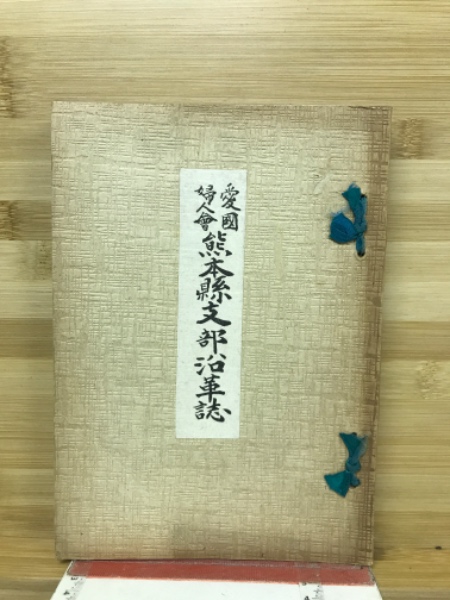 愛國
婦人會
熊本縣支部沿革誌